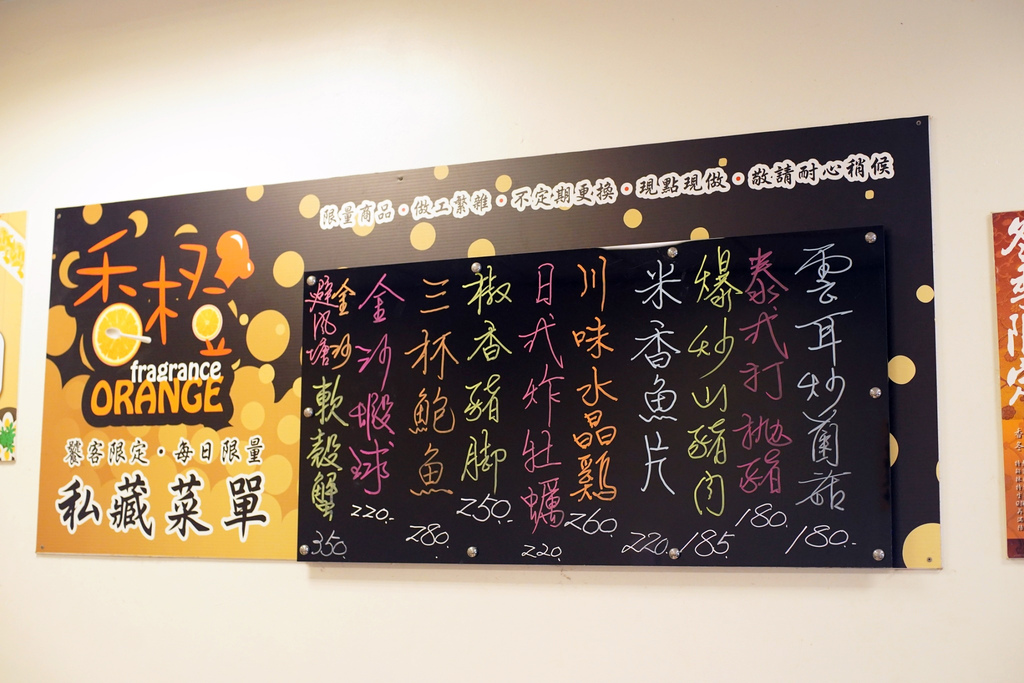 限量商品・做工繁雜・不定期更換・現點現做・敬請耐心稍候
禾橙
fragrance
ORANGE
饕客限定・每日限量
私藏菜單
雲耳炒菌菇 180.-
泰式打拋豬 180.
爆炒山豬肉 185
米香魚片 220.
川味水晶鷄 260
日式炸牡蠣 220.
椒香豬腳 250.-
三杯鮑魚 280.
金沙蝦球 220.-
金沙
避風塘軟殼蟹 350.